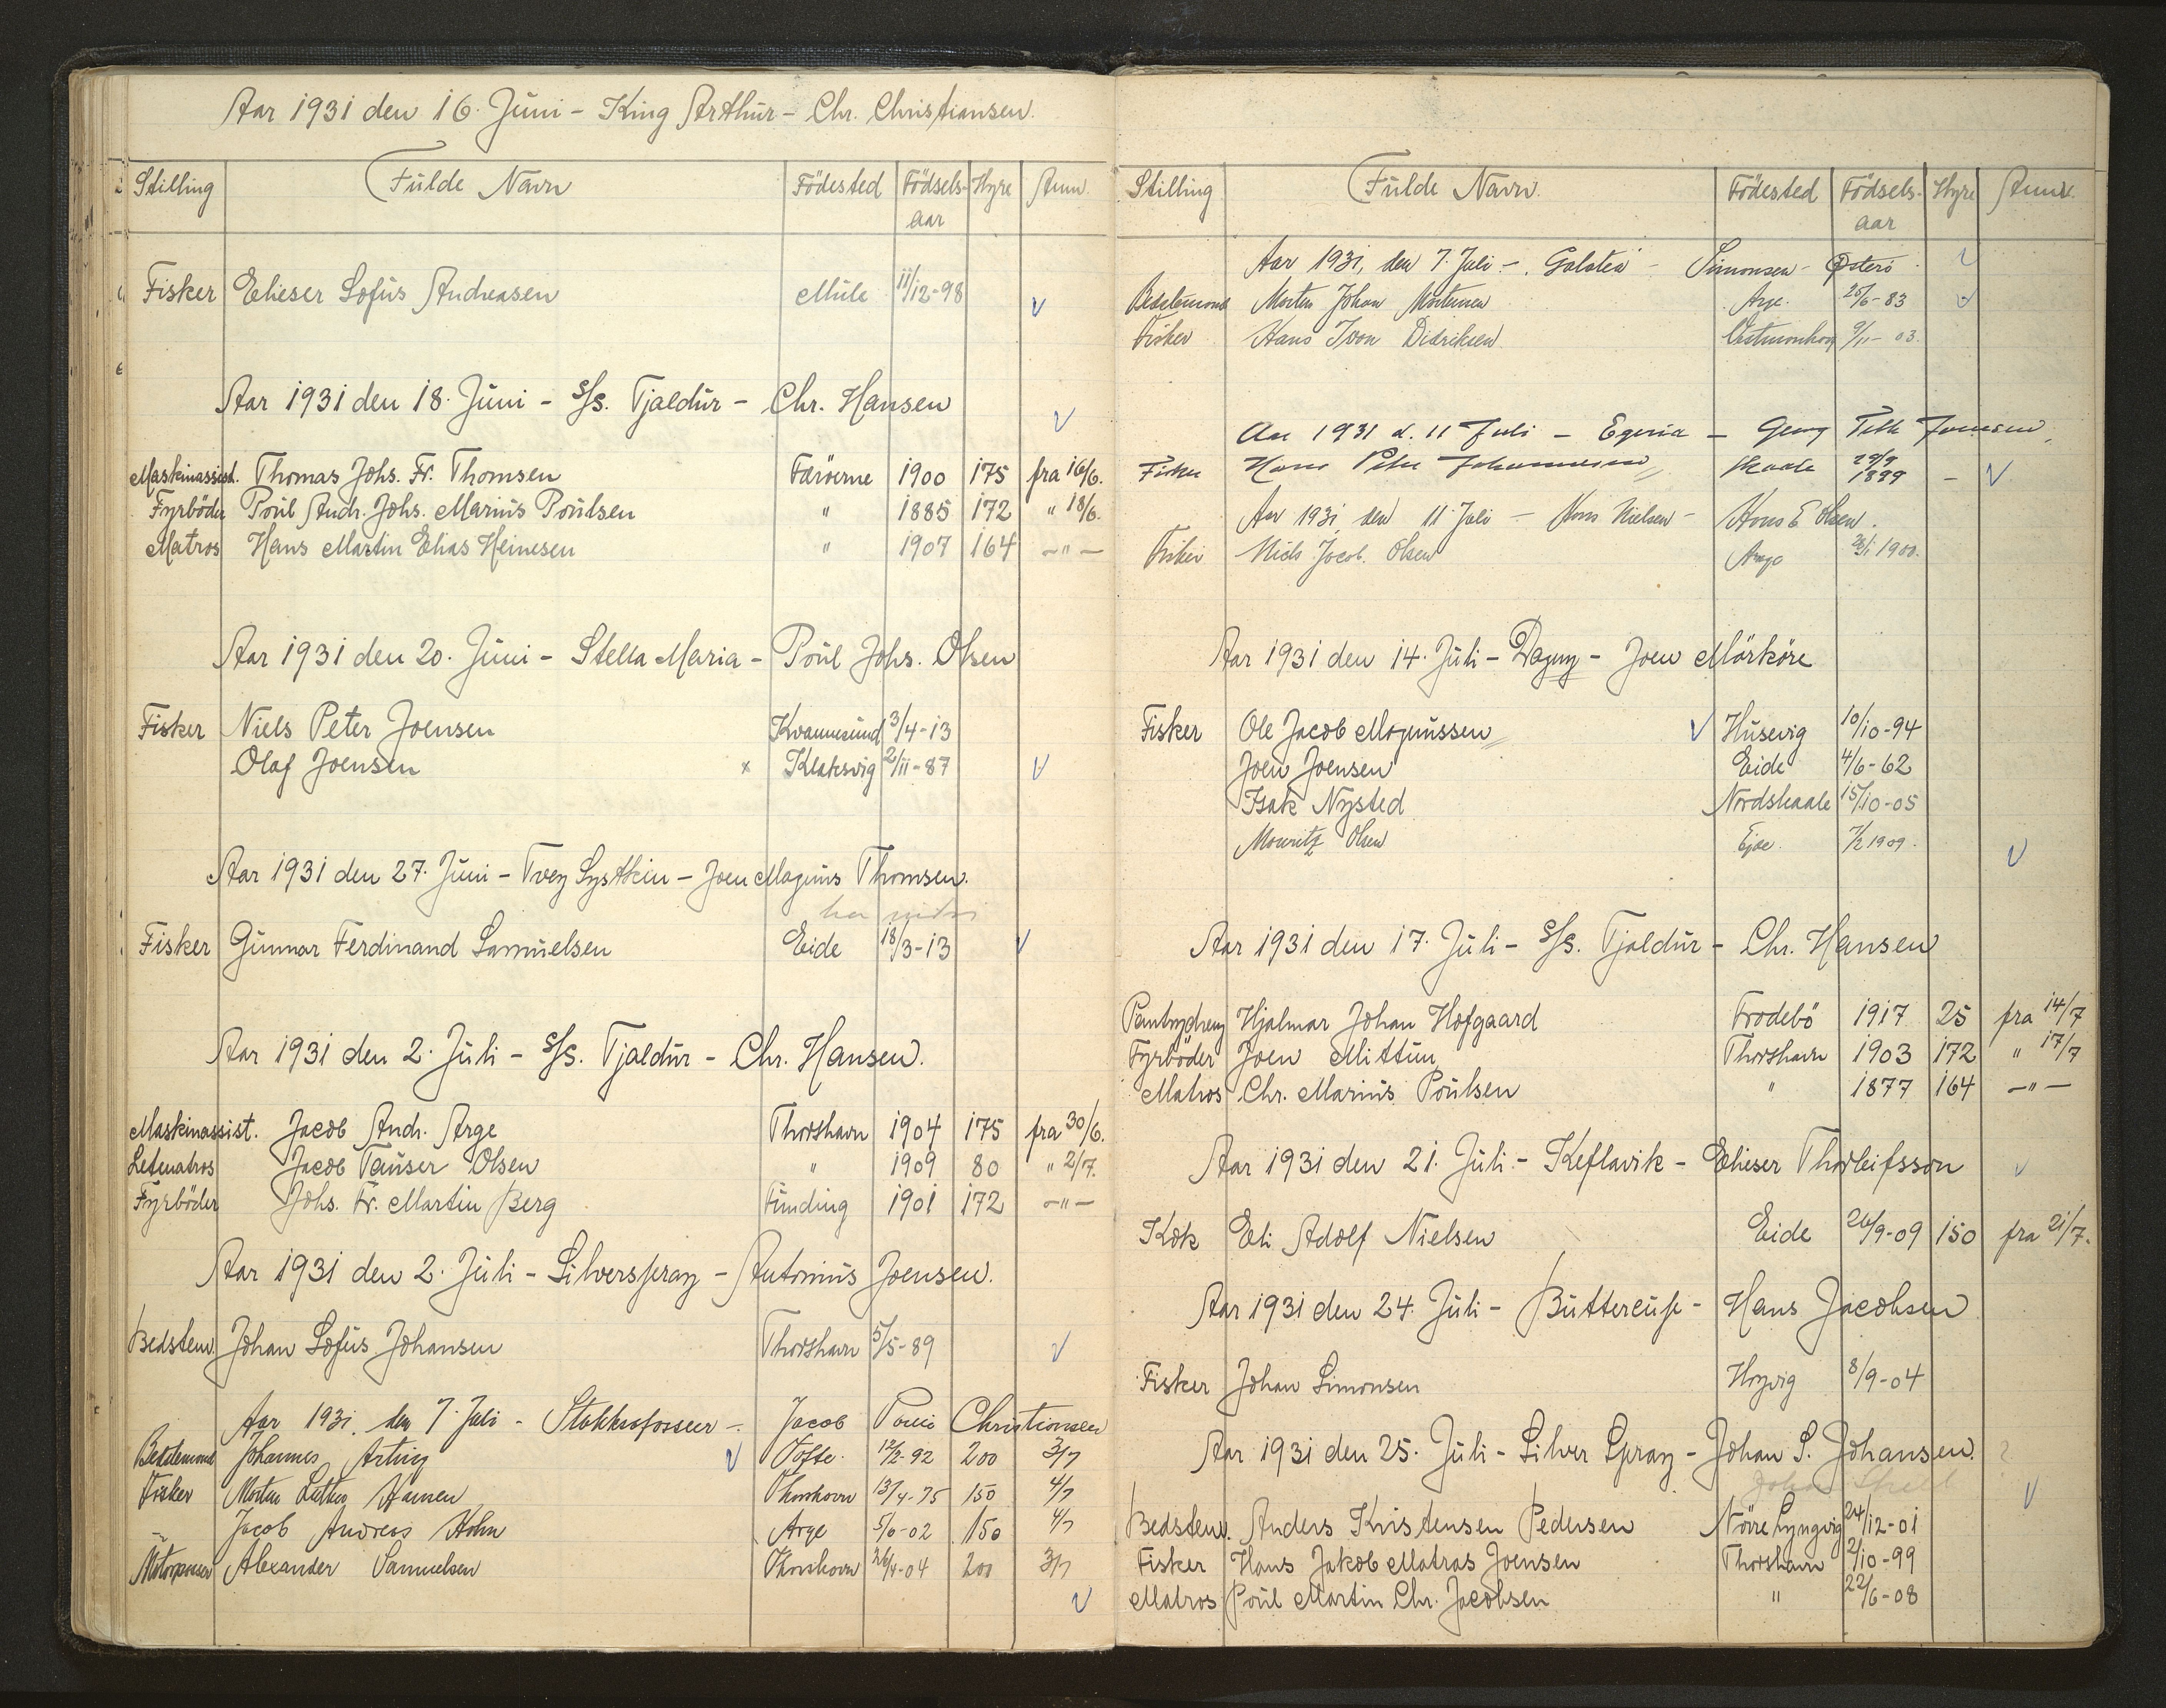 Aar 1931 den 16. Juni - King Arthur - Chr. Christiansen.
Stilling Fulde Navn Födested Födsels- Hyre Anm.
aar
Fisker Elieser Sofus Andreasen Mule 11/12-98
Aar 1931 den 18. Juni - S/S. Tjaldur - Chr. Hansen
Maskinassist. Thomas Johs. Fr. Thomsen Færöerne 1900 175 fra 16/6.
Fyrböder Poul Andr. Johs. Marius Poulsen " 1885 172 " 18/6.
Matros Hans Martin Elias Heinesen " 1907 164 -"-
Aar 1931 den 20. Juni - Stella Maria - Poul Johs. Olsen
Fisker Niels Peter Joensen Kvannesund 3/4-13
Olaf Joensen x Klaksvig 2/11-87
Aar 1931 den 27. Juni - Tvey Systkin - Joen Magnus Thomsen.
Fisker Gunnar Ferdinand Samuelsen Eide 18/3-13
Aar 1931 den 2. Juli - S/S. Tjaldur - Chr. Hansen.
Maskinassist. Jacob Andr. Arge Thorshavn 1904 175 fra 30/6.
Letmatros Jacob Tauser Olsen " 1909 80 " 2/7.
Fyrböder Johs. Fr. Martin Berg Funding 1901 172 -"-
Aar 1931 den 2. Juli - Silverspray - Antonius Joensen.
Bedstem. Johan Sofus Johansen Thorshavn 5/5-89
Aar 1931. den 7. Juli - Jacob Christiansen
Bedstemand Johannes Arting Tofte. 12/2-92 200 3/7
Fisker Morten Luther Hansen Thorshavn 13/4-75 150 4/7
Jacob Andreas Hohn Arge 5/6-02 150 4/7
Motorpasser Alexander Samuelsen Thorshavn 26/4-04 200 3/7
Stilling Fulde Navn. Födested Födsels- Hyre Anm.
aar
Aar 1931, den 7. Juli - Galatea - Simonsen - Østerö
Bedstemand Morten Johan Mortensen Arge. 25/6-83
Fisker Hans Ivan Didriksen Vestmanhavn 9/11-03.
Aar 1931 d. 11 Juli - Egeria - Georg Joensen.
Fisker Hans Peter Johannesen Skaale 29/9 1899 -
Aar 1931 den 11 Juli - Hans Nielsen - Hans E Olsen.
Fisker Niels Jacob. Olsen Arge 1900.
Aar 1931 den 14. Juli - Dagny - Joen Mörköre
Fisker Ole Jacob Magnussen Husevig 10/10-94
Joen Joensen Eide 4/6-62
Isak Nysted Nordskaale 15/10-05
Mouritz Olsen Ejde. 7/2 1909.
Aar 1931 den 17. Juli - S/S. Tjaldur - Chr. Hansen
Pantrydreng Hjalmar Johan Hofgaard Frodebö 1917 25 fra 14/7
Fyrböder Joen Mittun Thorshavn 1903 172 " 17/7
Matros Chr. Marius Poulsen " 1877 164 -"-
Aar 1931 den 21. Juli - Keflavik - Elieser Thorleifsson
Kok Eli Adolf Nielsen Eide 26/9-09 150 fra 21/7.
Aar 1931 den 24. Juli - Buttercup - Hans Jacobsen
Fisker Johan Simonsen Hoyvig 8/9-04
Aar 1931 den 25. Juli - Silver Spray - Johan S. Johansen.
Bedstem. Anders Kristensen Pedersen Nörre Lyngvig 24/12-01
Fisker Hans Jakob Matras Joensen Thorshavn 2/10-99
Matros Poul Martin Chr. Jacobsen " 22/6-08